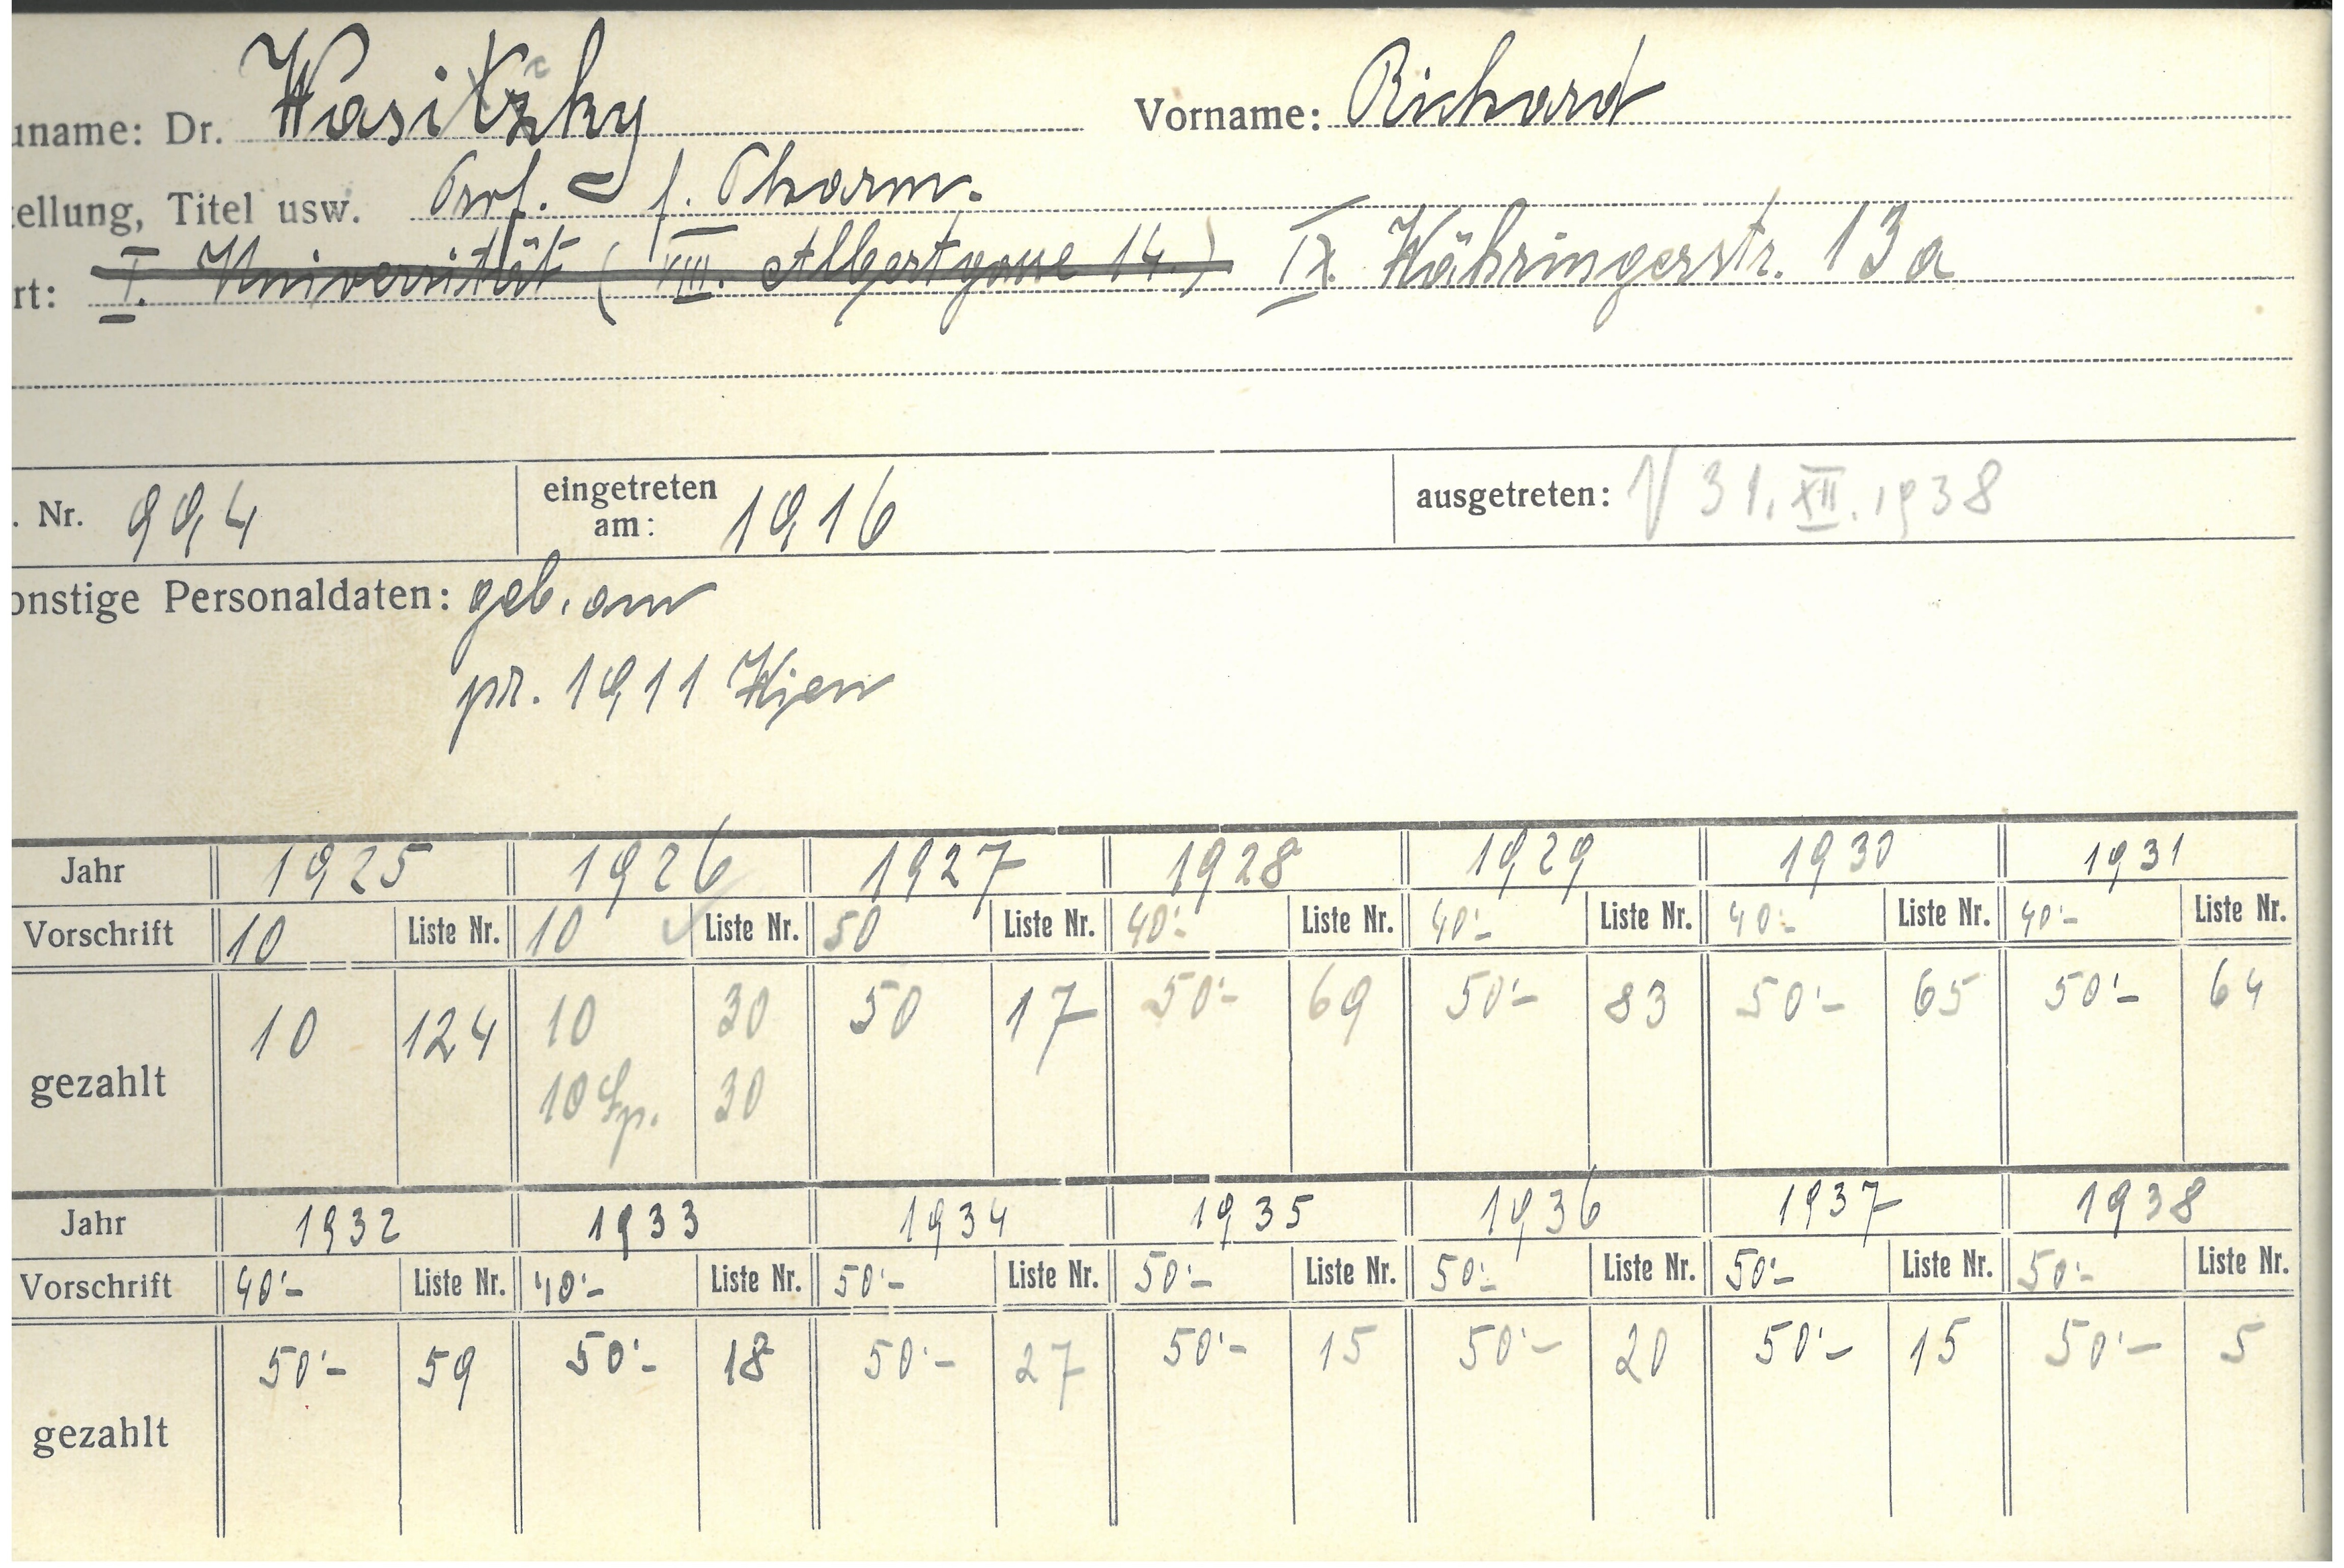 uname: Dr. Wasitzky Vorname: Richard
tellung, Titel usw. Prof. f. Pharm.
rt: I. Universität ( VIII. Albertgasse 14.) IX. Währingerstr. 13a
. Nr. 994 eingetreten am: 1916 ausgetreten: 31. XII. 1938
onstige Personaldaten: geb. am
pr. 1911 Wien
Jahr 1925 1926 1927 1928 1929 1930 1931
Vorschrift 10 Liste Nr. 10 Liste Nr. 50 Liste Nr. 40'- Liste Nr. 40'- Liste Nr. 40'- Liste Nr. 40'- Liste Nr.
gezahlt 10 124 10 30 50 17 50'- 69 50'- 83 50'- 65 50'- 64
10 Sp. 30
Jahr 1932 1933 1934 1935 1936 1937 1938
Vorschrift 40'- Liste Nr. 40'- Liste Nr. 50'- Liste Nr. 50'- Liste Nr. 50'- Liste Nr. 50'- Liste Nr. 50'- Liste Nr.
gezahlt 50'- 59 50'- 18 50'- 27 50'- 15 50'- 20 50'- 15 50'- 5